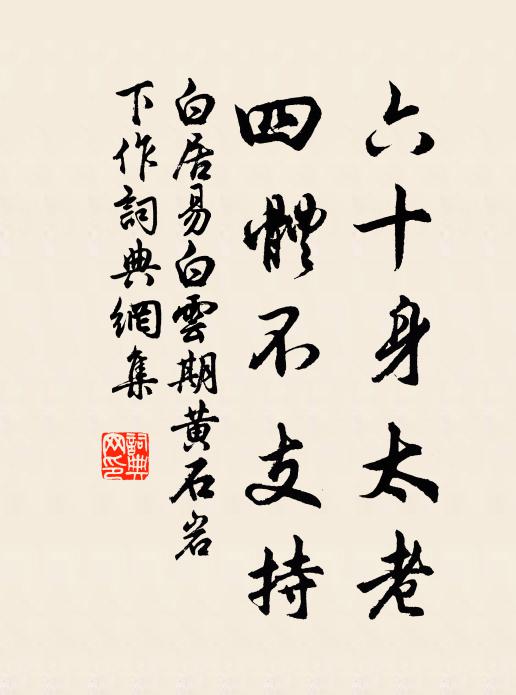 六十身太老
四體不支持
白居易白雲期黄石岩
下作詞典網集
詞典
網印